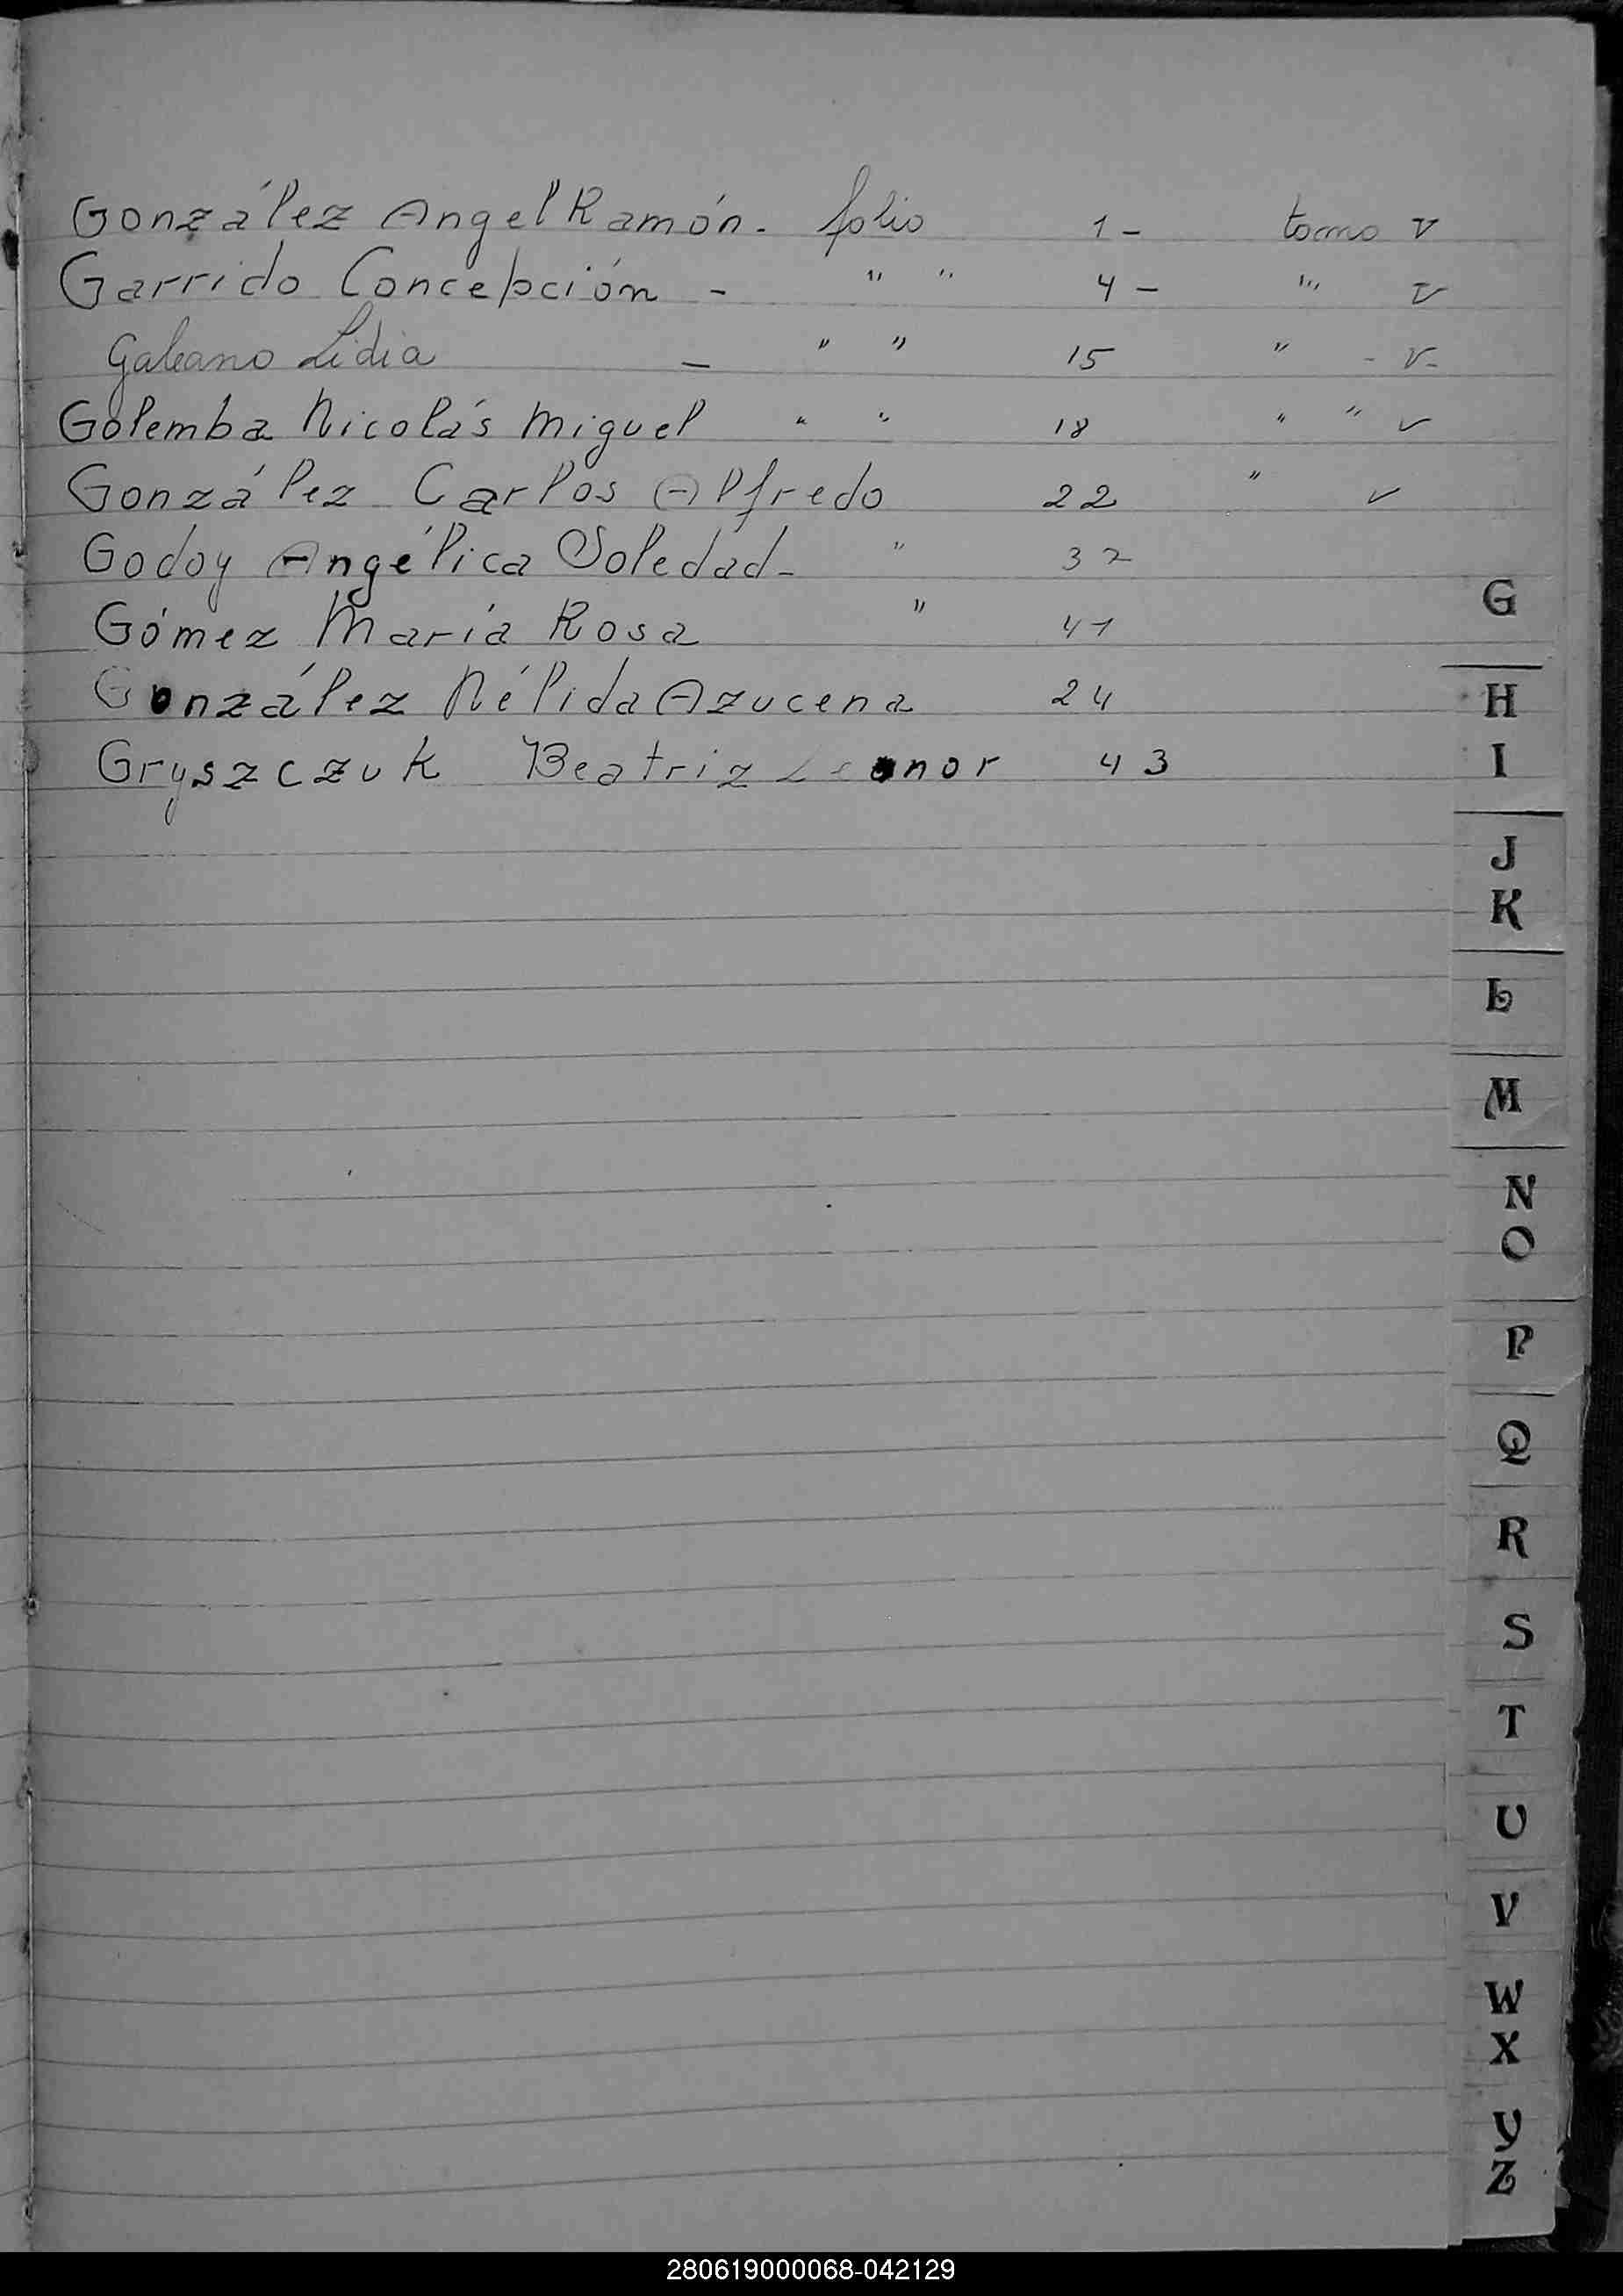 González Angel Ramón. folio 1 - tomo V
Garrido Concepción - " " 4 - " V
Galeano Lidia - " " 15 " - V-
Golemba Nicolás Miguel " " 18 " " V
González Carlos Alfredo 22 " V
Godoy Angélica Soledad - " 37
Gómez María Rosa " 41
González Nélida Azucena 24
Gryszczuk Beatriz Leonor 43
G
H
I
J
K
L
M
N
O
P
Q
R
S
T
U
V
W
X
Y
Z
280619000068-042129